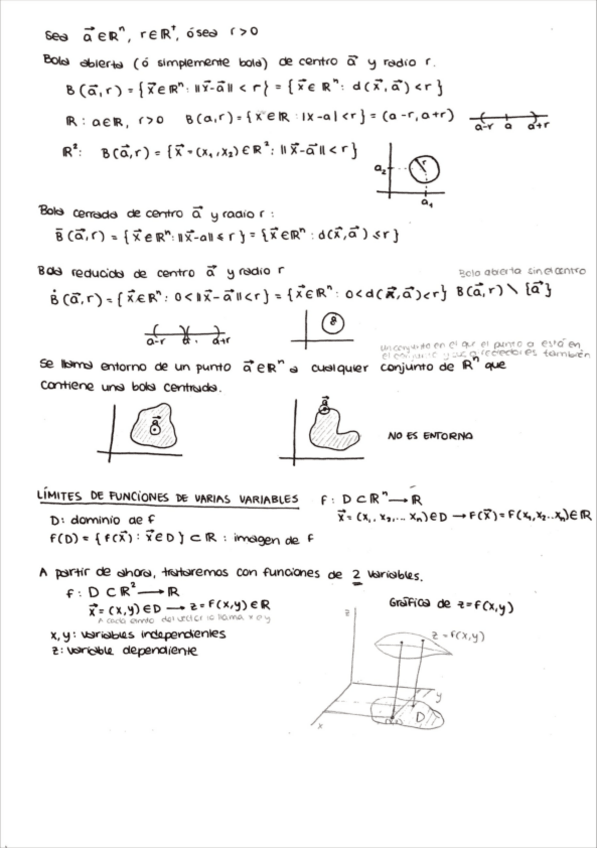 Sea a⃗ ∈ ℝⁿ, r ∈ ℝ⁺, ó sea r > 0
Bola abierta (ó simplemente bola) de centro a⃗ y radio r.
B(a⃗, r) = { x⃗ ∈ ℝⁿ : ||x⃗-a⃗|| < r } = { x⃗ ∈ ℝⁿ : d(x⃗, a⃗) < r }
ℝ : a ∈ ℝ, r > 0 B(a, r) = { x ∈ ℝ : |x-a| < r } = (a-r, a+r)
a-r a a+r
ℝ²: B(a⃗, r) = { x⃗ = (x₁, x₂) ∈ ℝ² : ||x⃗-a⃗|| < r }
r
a₂
a₁
Bola cerrada de centro a⃗ y radio r :
B̄(a⃗, r) = { x⃗ ∈ ℝⁿ : ||x⃗-a|| ≤ r } = { x⃗ ∈ ℝⁿ : d(x⃗, a⃗) ≤ r }
Bola reducida de centro a⃗ y radio r
Bola abierta sin el centro
Ḃ(a⃗, r) = { x⃗ ∈ ℝⁿ : 0 < ||x⃗-a⃗|| < r } = { x⃗ ∈ ℝⁿ : 0 < d(x⃗, a⃗) < r } B(a⃗, r) \ {a⃗}
a-r a. a+r
un conjunto en el que el punto a está en
el conjunto y sus alrededores también
Se llama entorno de un punto a⃗ ∈ ℝⁿ a cualquier conjunto de ℝⁿ que
contiene una bola centrada.
NO ES ENTORNO
LÍMITES DE FUNCIONES DE VARIAS VARIABLES f : D ⊂ ℝⁿ → ℝ
x⃗ = (x₁, x₂, ... xₙ) ∈ D → F(x⃗) = F(x₁, x₂ ... xₙ) ∈ ℝ
D : dominio de f
f(D) = { f(x⃗) : x⃗ ∈ D } ⊂ ℝ : imagen de f
A partir de ahora, trataremos con funciones de 2 variables.
f : D ⊂ ℝ² → ℝ
x⃗ = (x, y) ∈ D → z = F(x, y) ∈ ℝ
Gráfica de z = f(x, y)
A cada del vector lo llama x o y
x, y : variables independientes
z : variable dependiente
z
z = f(x, y)
y
D
x